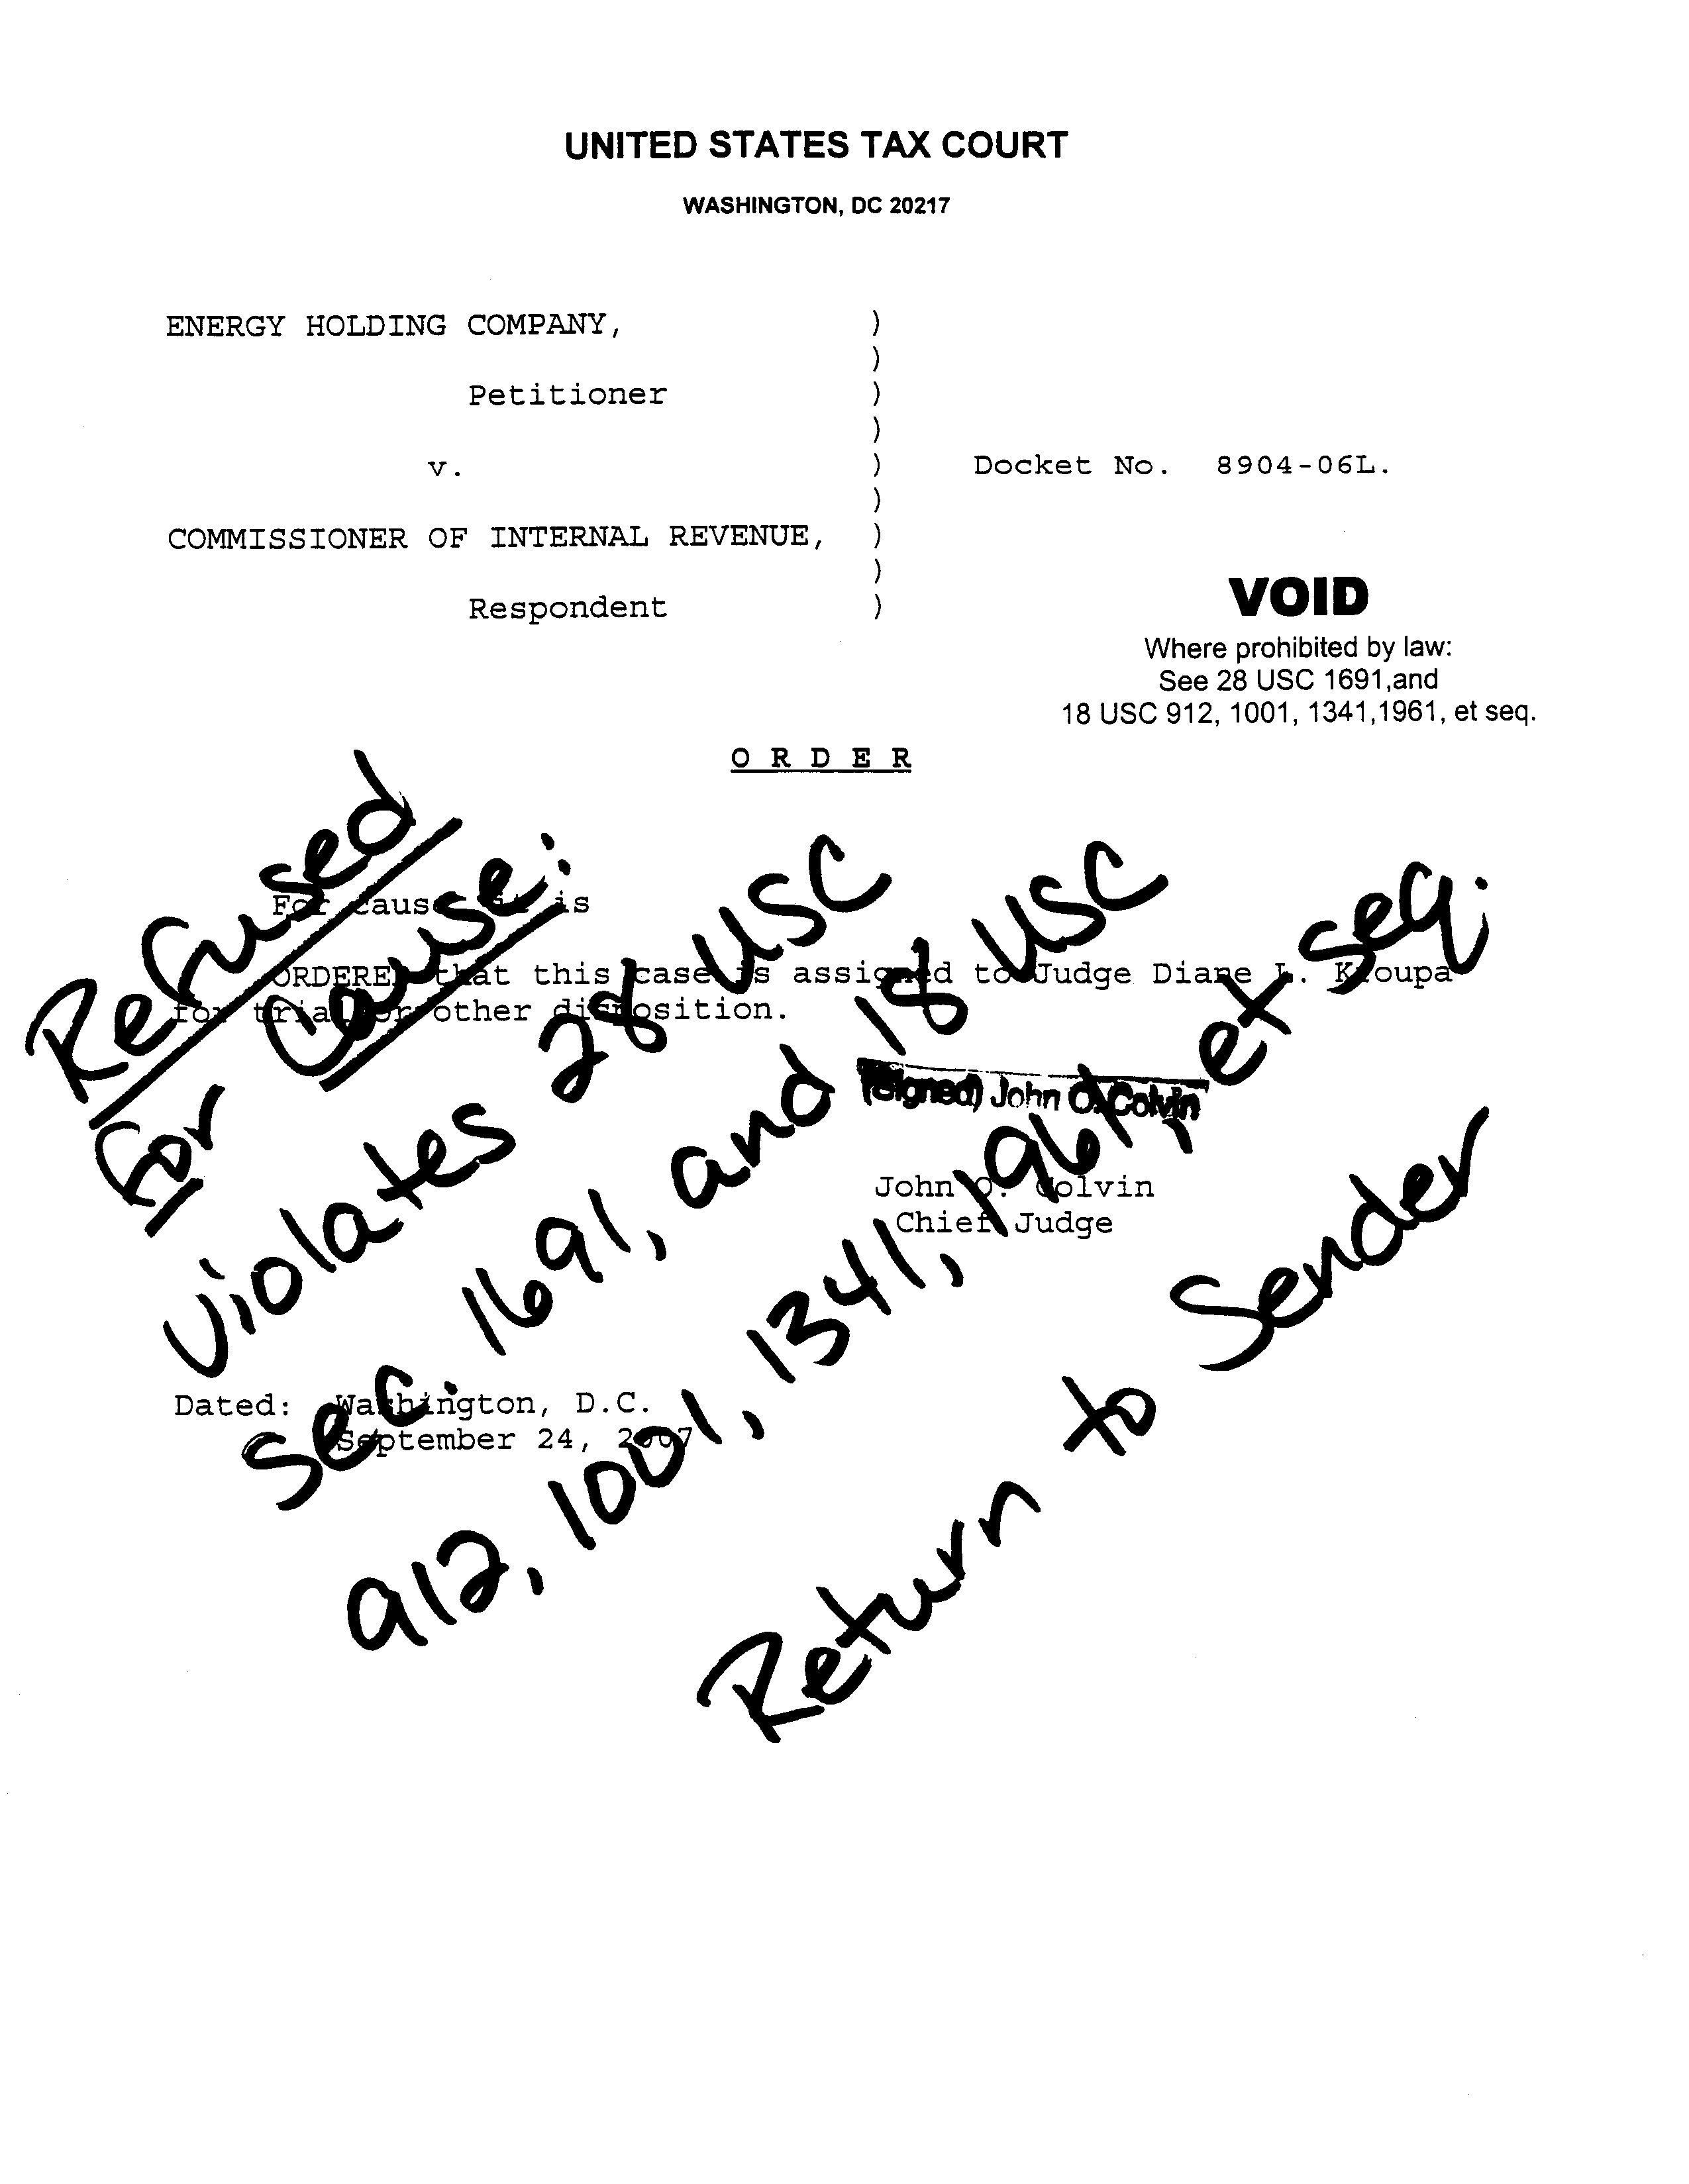 UNITED STATES TAX COURT
WASHINGTON, DC 20217
ENERGY HOLDING COMPANY, )
)
Petitioner )
)
v. ) Docket No. 8904-06L.
)
COMMISSIONER OF INTERNAL REVENUE, )
)
Respondent )
VOID
Where prohibited by law:
See 28 USC 1691,and
18 USC 912, 1001, 1341,1961, et seq.
O R D E R
For cause it is
ORDERED that this case is assigned to Judge Diane L. Kroupa
for trial or other disposition.
(Signed) John O. Colvin
John O. Colvin
Chief Judge
Dated: Washington, D.C.
September 24, 2007
Refused
For Cause:
Violates 28 USC
Sec. 1691, and 18 USC
912, 1001, 1341, 1961, et seq.
Return to Sender